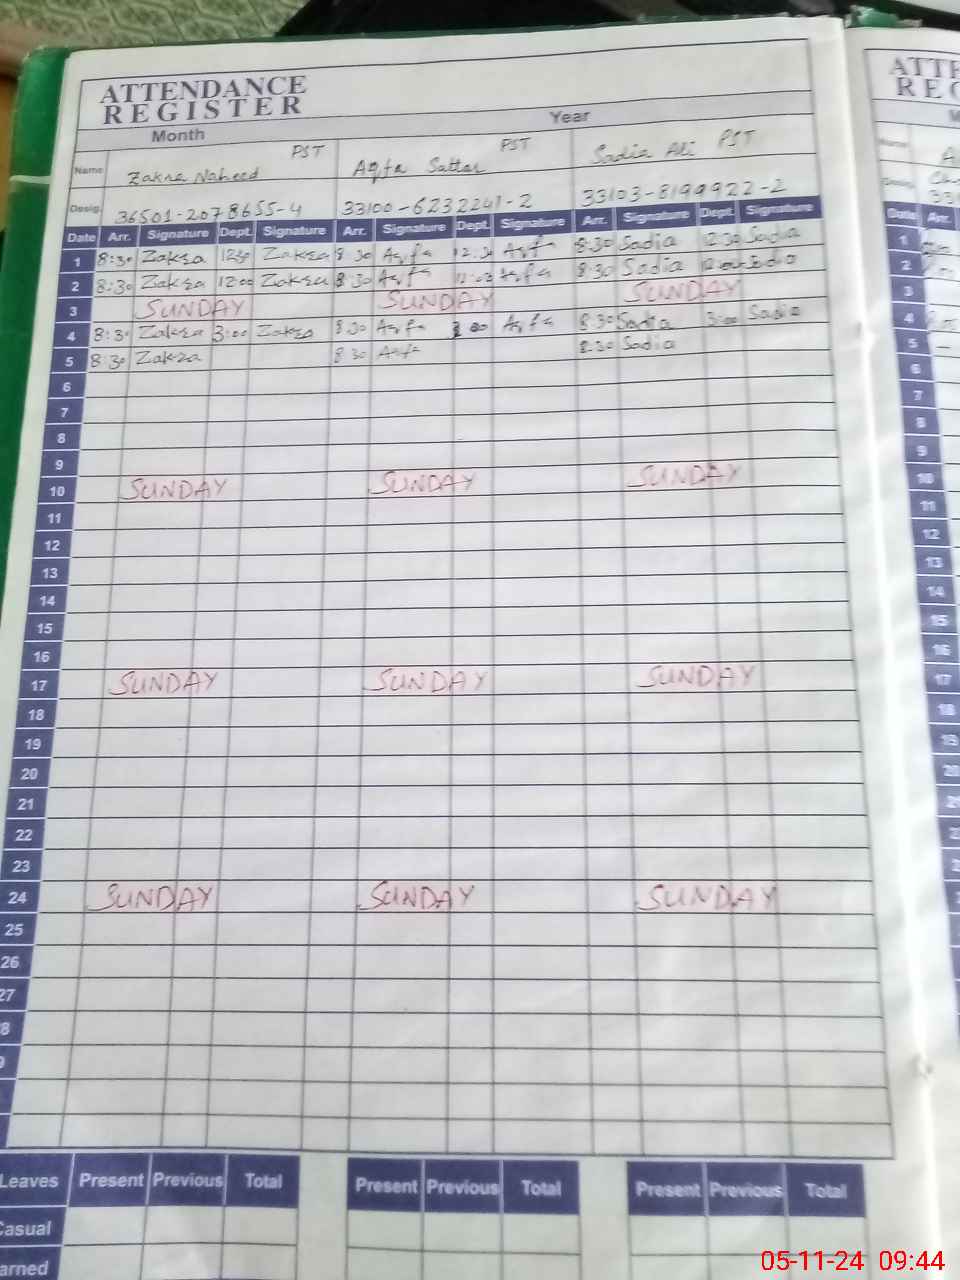 ATTENDANCE
REGISTER
Month Year
Name Zakra Naheed PST Aqfa Sattar PST Sadia Ali PST
Desig. 36501-2078655-4 33100-6232241-2 33103-8199922-2
Date Arr. Signature Dept. Signature Arr. Signature Dept. Signature Arr. Signature Dept. Signature
1 8:30 Zakra 12:30 Zakra 8 30 12:30 8:30 Sadia 12:30 Sadia
2 8:30 Zakra 12:00 Zakra 8:30 12:00 8:30 Sadia 12:00 Sadia
3 SUNDAY SUNDAY SUNDAY
4 8:30 Zakra 3:00 Zakra 8 30 3 00 8:30 Sadia 3:00 Sadia
5 8:30 Zakra 8 30 8:30 Sadia
6
7
8
9
10 SUNDAY SUNDAY SUNDAY
11
12
13
14
15
16
17 SUNDAY SUNDAY SUNDAY
18
19
20
21
22
23
24 SUNDAY SUNDAY SUNDAY
25
26
27
8
9
Leaves Present Previous Total Present Previous Total Present Previous Total
Casual
arned
ATTE
REG
Date Arr.
1
2
3
4
5
6
7
8
9
10
11
12
13
14
15
16
17
18
19
20
05-11-24 09:44